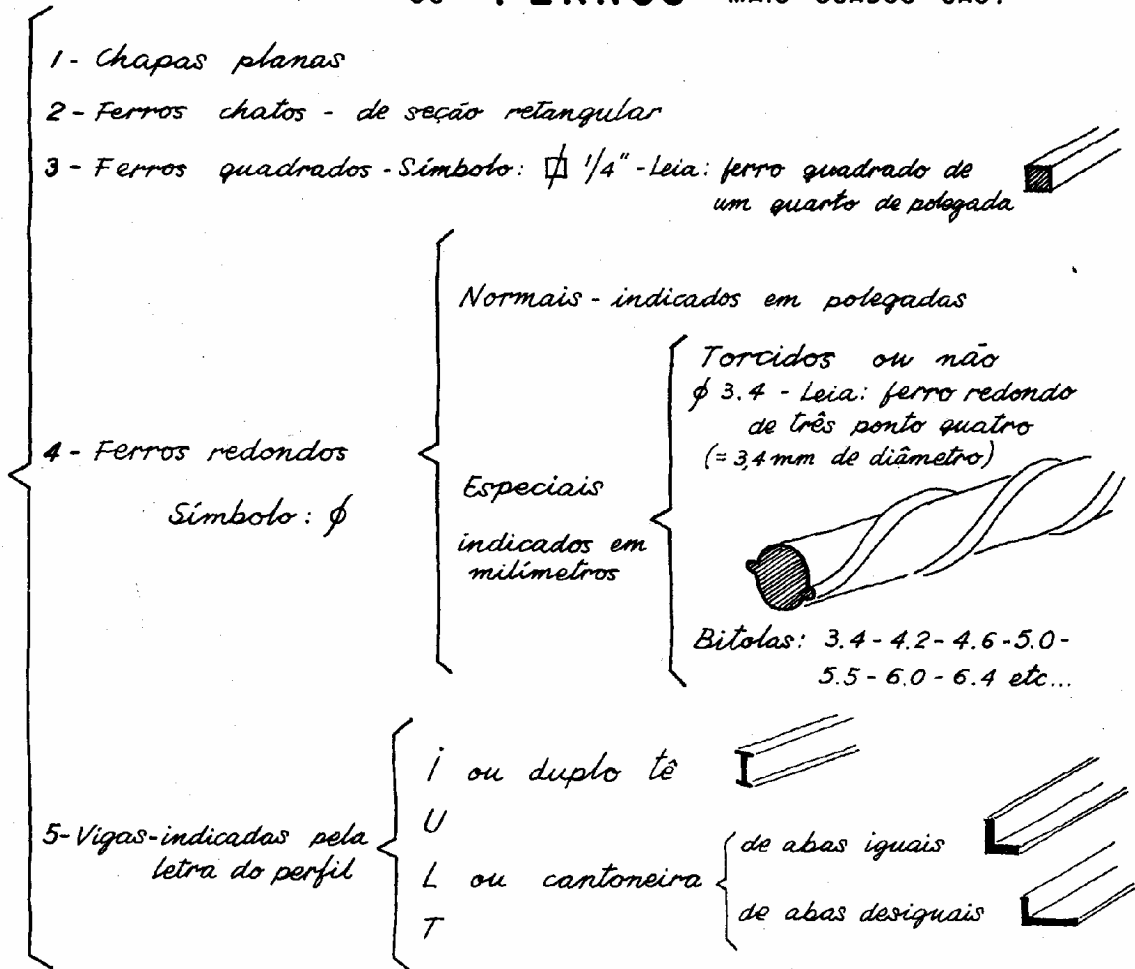 OS FERROS MAIS USADOS SÃO:
1 - Chapas planas
2 - Ferros chatos - de seção retangular
3 - Ferros quadrados - Símbolo: 1/4" - Leia: ferro quadrado de
um quarto de polegada
4 - Ferros redondos
Símbolo: ϕ
Normais - indicados em polegadas
Especiais
indicados em
milímetros
Torcidos ou não
ϕ 3.4 - Leia: ferro redondo
de três ponto quatro
(= 3,4 mm de diâmetro)
Bitolas: 3.4 - 4.2 - 4.6 - 5.0 -
5.5 - 6.0 - 6.4 etc...
5 - Vigas - indicadas pela
letra do perfil
i ou duplo tê
U
L ou cantoneira
T
de abas iguais
de abas desiguais